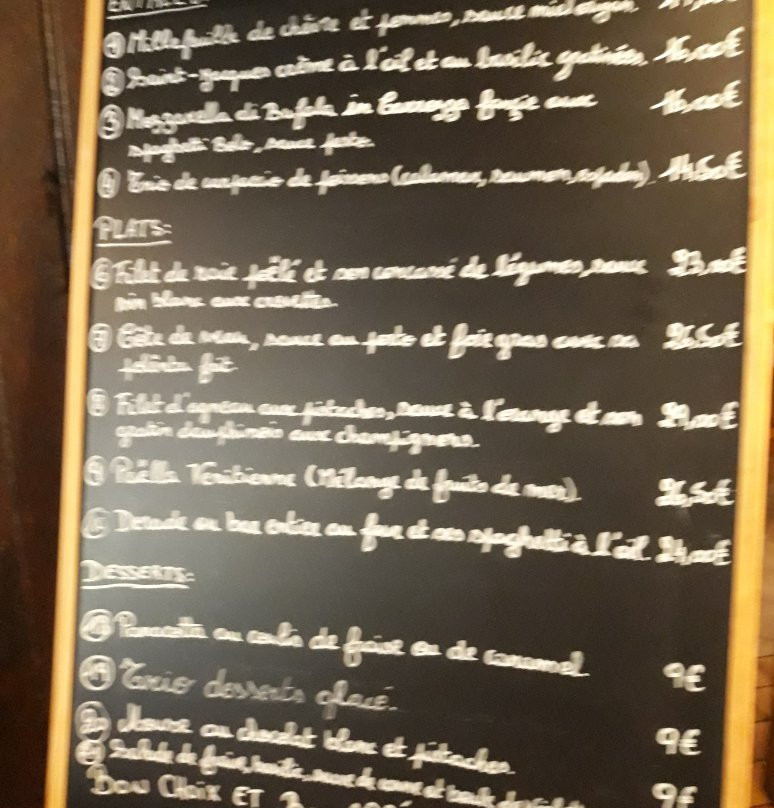 ENTRÉES:
① Millefeuille de chèvre et pommes, sauce miel
② Saint-Jacques crème à l'ail et au basilic gratinées. 16,00€
③ Mozzarella di Bufala in farçie aux 16,00€
spaghetti Bolo, sauce pesto.
④ Trio de carpaccio de poissons (calamar, saumon, espadon). 14,50€
PLATS:
Filet de raie poêlé et son concassé de légumes, sauce 23,00€
vin blanc aux crevettes.
⑦ Côte de veau, sauce au porto et foie gras avec sa 26,50€
polenta frit.
⑧ Filet d'agneau aux pistaches, sauce à l'orange et son 29,00€
gratin dauphinois aux champignons.
⑨ Paëlla Vénitienne (Mélange de fruits de mer). 26,50€
Dorade ou bar entier au four et ses spaghetti à l'ail 24,00€
DESSERTS:
Panacotta au coulis de fraise ou de caramel. 9€
⑲ Trio desserts glacé.
⑳ Mousse au chocolat blanc et pistaches. 9€
Salade de fraise, 9€
BON CHOIX ET BON